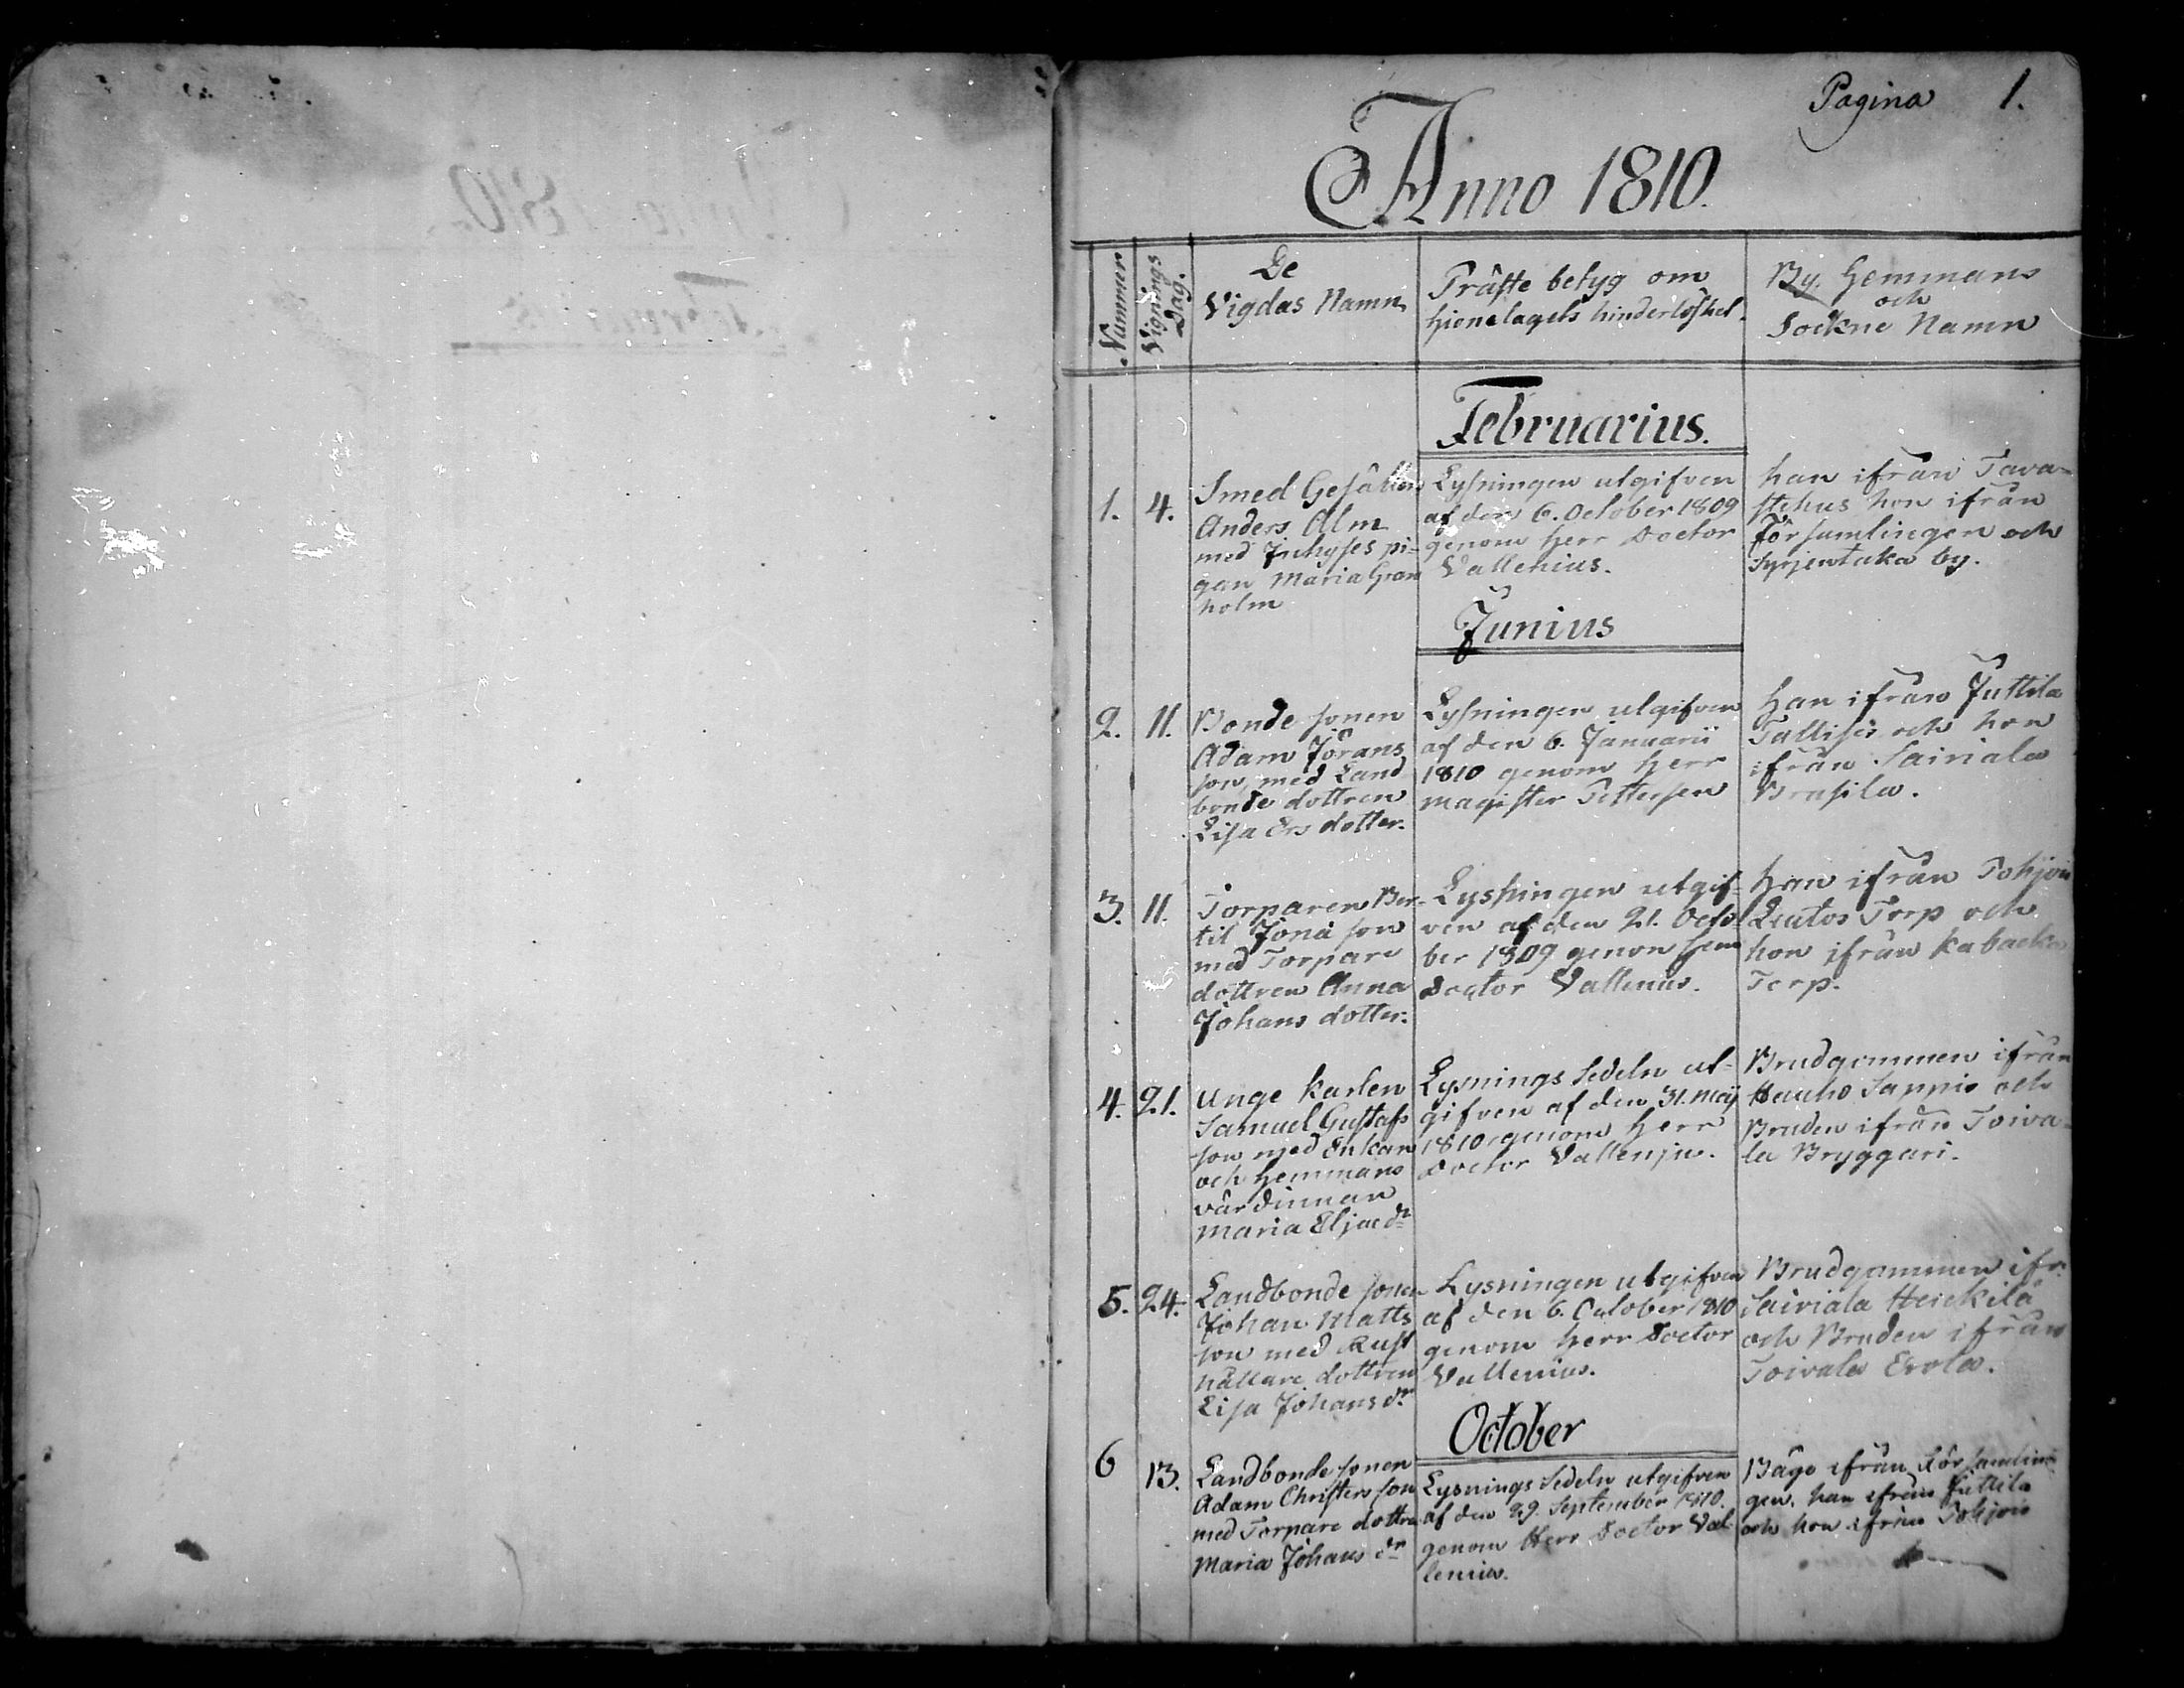 Pagina 1.
Anno 1810.
Nummer
Vignings Dag.
De
Vigdas Namn
Präste betyg om
hionelagets hinderlöshet.
By, Hemmans
och
Sockne Namn
Februarius.
1. 4.
Smed Gesällen
Anders Alm
med Inhyses pi-
gan Maria Gran
holm
Lysningen utgifven
af den 6. October 1809
genom Herr Doctor
Vallenius.
han ifrån Tava-
stehus hon ifrån
Församlingen och
Syrjentaka by.
Junius
2. 11.
Bonde sonen
Adam Jörans
son, med Land
bonde dottren
Lisa Ers dotter.
Lysningen utgifven
af den 6. Januarii
1810 genom Herr
Magister Pettersen
Han ifrån Juttila
och hon
ifrån Sairiala
Brasila.
3. 11.
Torparen Ber-
til Jona son
med Torpare
dottren Anna
Johans dotter.
Lysningen utgif-
ven af den 21. Octo
ber 1809 genom Herr
Doctor Vallenius.
Han ifrån Pohjois
Torp och
hon ifrån
Torp.
4. 21.
Unge karlen
Samuel Gustafs
son med Enkan
och Hemmans
värdinnan
Maria Eljae dr
Lysnings Sedeln ut-
gifven af den 31. Maij
1810 genom Herr
Doctor Vallenius.
Brudgummen ifrån
Hauho Sappio och
Bruden ifrån Toiva-
la Bryggari.
5. 24.
Landbonde sonen
Johan Matts
son med Rust
hållare dottren
Lisa Johans dr
Lysningen utgifven
af den 6. October 1810
genom Herr Doctor
Vallenius.
Brudgummen ifr.
Sairiala Heickilä
och Bruden ifrån
Toivala Erola.
October
6 13.
Landbonde sonen
Adam Christers son
med Torpare dottren
Maria Johans dr
Lysnings Sedeln utgifven
af den 29. September 1810.
genom Herr Doctor Val
lenius.
Bäge ifrån Församlin-
gen, han ifrån Juttila
och hon ifrån Pohjois